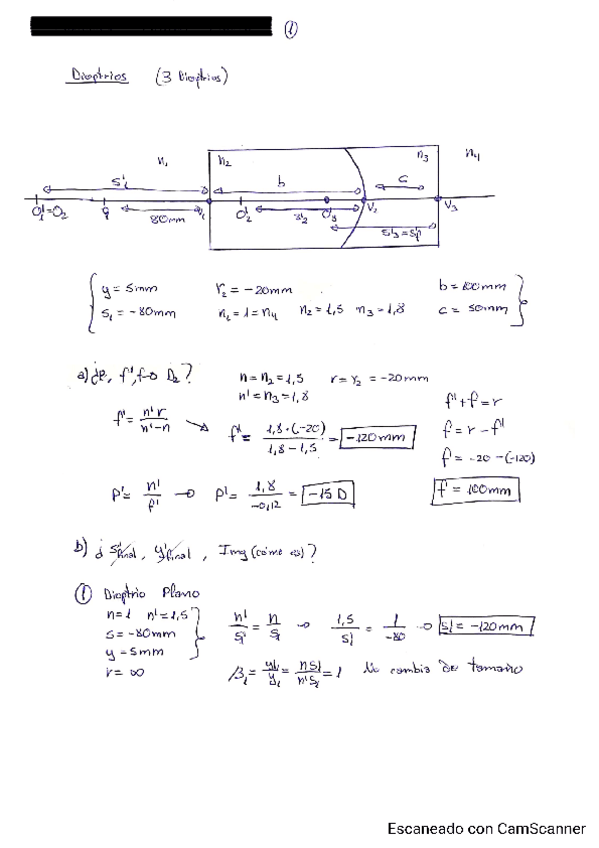 ①
Dioptrios (3 Dioptrios)
n₁ n₂ n₃ n₄
s'₁ b c
O'₁=O₂ 80mm V₁ O'₂ s'₂ O'₃ V₂ V₃
s'₃=s'f
y = 5mm r₂ = -20mm b = 100mm
s₁ = -80mm n₁ = 1 = n₄ n₂ = 1,5 n₃ = 1,8 c = 50mm
a) ¿P, f', f → D₂? n = n₂ = 1,5 r = r₂ = -20mm
n' = n₃ = 1,8
f' + f = r
f' = n'r / n'-n → f' = 1,8·(-20) / 1,8-1,5 = -120mm
f = r - f'
f = -20 - (-120)
P' = n' / f' → P' = 1,8 / -0,12 = -15 D
f = 100mm
b) ¿ s'final, y'final, Img (cómo es)?
① Dioptrio Plano
n = 1 n' = 1,5
s = -80mm
y = 5mm
r = ∞
n' / s'₁ = n / s₁ → 1,5 / s'₁ = 1 / -80 → s'₁ = -120mm
β₁ = y'₁ / y₁ = n s'₁ / n' s₁ = 1 No cambia de tamaño
Escaneado con CamScanner